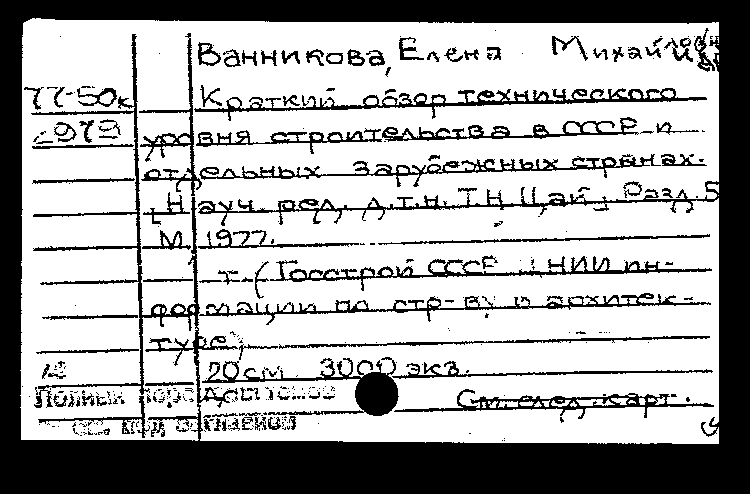 Ванникова, Елена Михайловна
77-50к Краткий обзор технического
2979 уровня строительства в СССР и
отдельных зарубежных странах.
[Науч. ред. д.т.н. Т.Н. Цай]. Разд. 5
М., 1977.
т. (Госстрой СССР. ЦНИИ ин-
формации по стр-ву и архитек-
туре)
20 см 3000 экз.
Полных
См. след. карт.
см. под заглавием